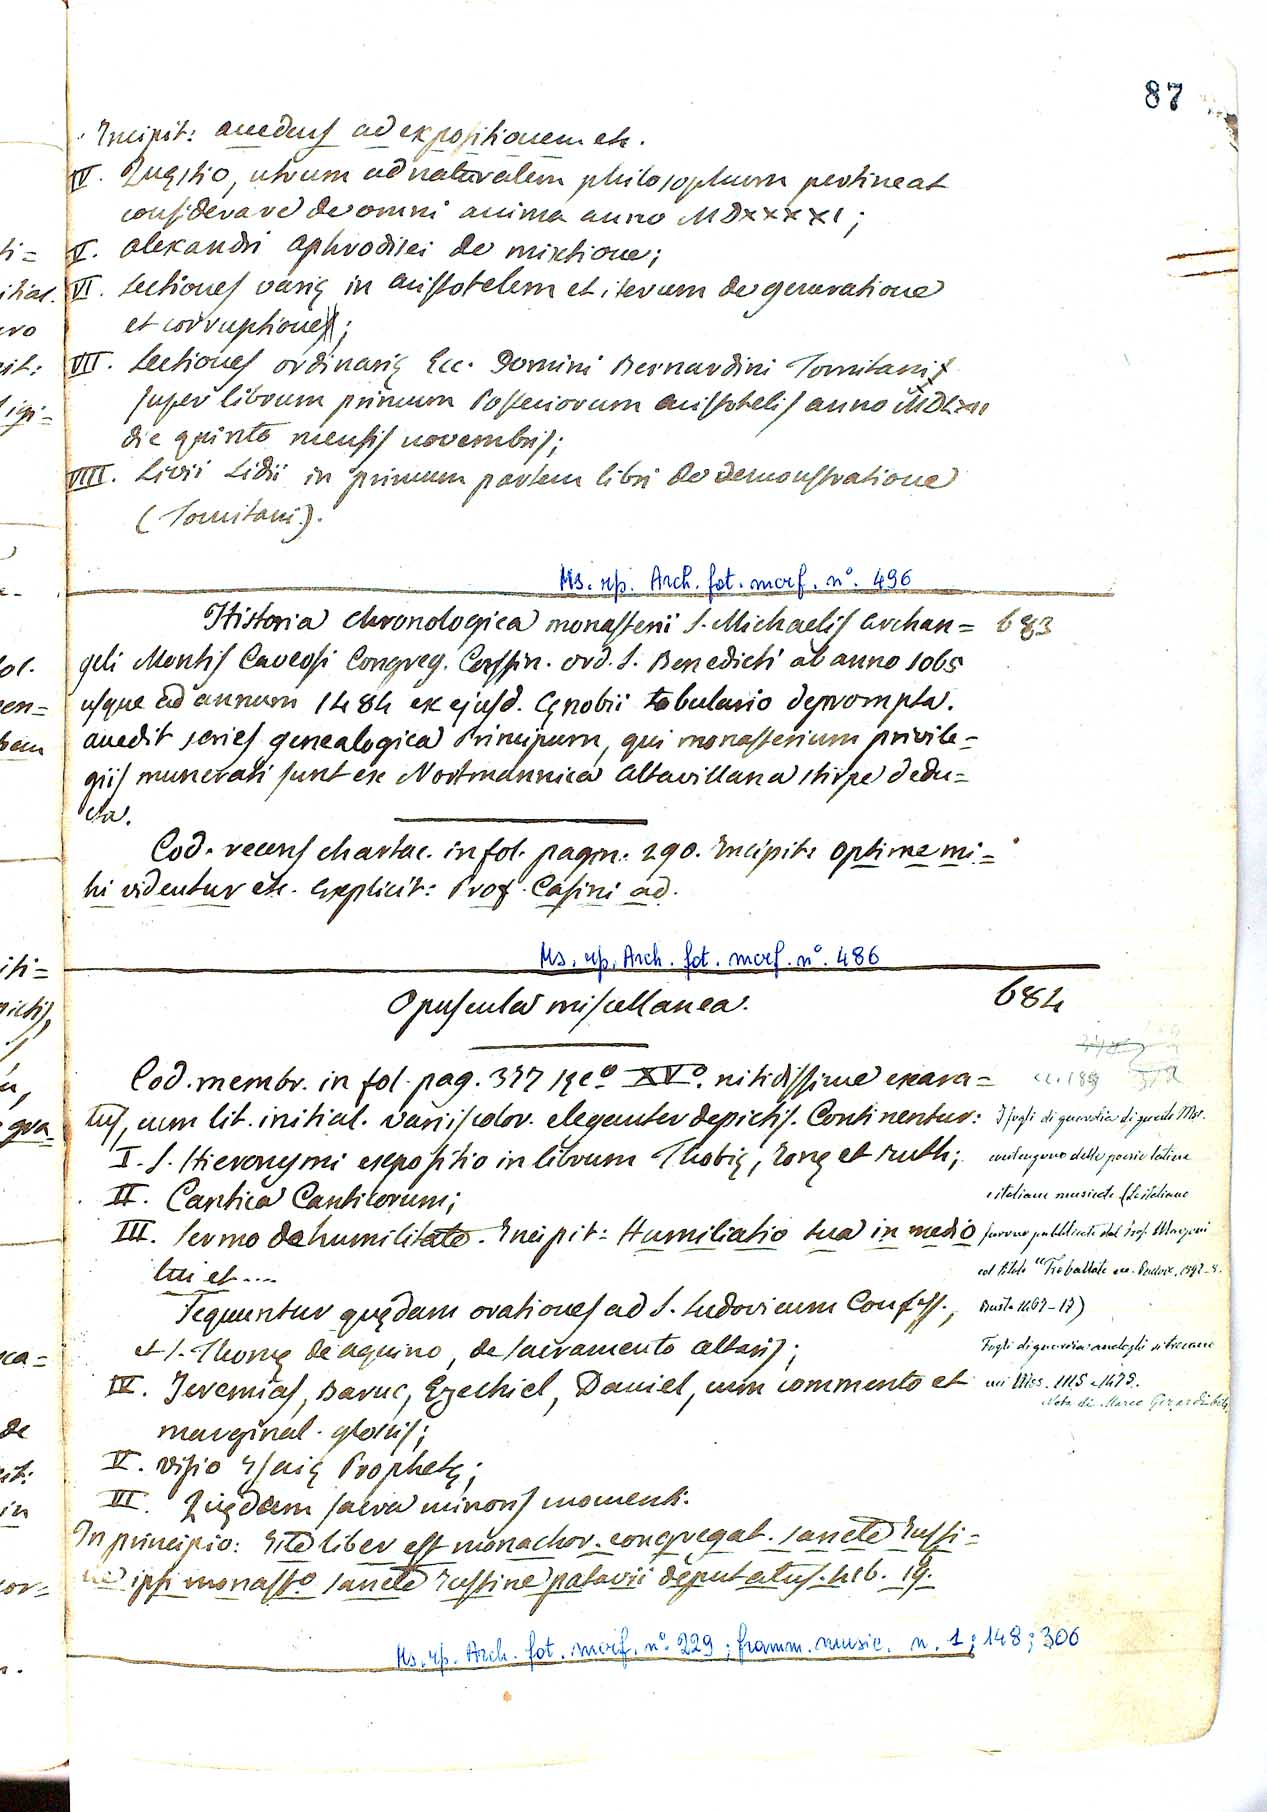 87
Incipit: accedens ad expositionem etc.
IV. Quęstio, utrum ad naturalem philosophum pertineat
considerare de omni anima anno MDXXXXI;
V. Alexandri Aphrodisei de mixtione;
VI. Lectiones varię in Aristotelem et iterum de generatione
et corruptione;
VII. Lectiones ordinarię Ecc. Domini Bernardini Tomitani
super librum primum Posteriorum Aristotelis anno MDLXII
die quinto mensis novembris;
VIII. Livii Lidii in primum partem libri de demonstratione
(Tomitani).
Ms. rip. Arch. fot. morf. n°. 496
Historia chronologica monasterii S. Michaelis Archan= 683
geli Montis Caveosi Congreg. Cassin. ord. S. Benedicti ab anno 1065
usque ad annum 1484 ex ejusd. Cęnobii tabulario deprompta.
accedit series genealogica Principum, qui monasterium privile=
giis munerati sunt ex Nortmannica Altavillana stirpe dedu=
cta.
Cod. recens chartac. in fol. pagin. 290. Incipit: Optime mi=
hi videntur etc. Explicit: Prof. Casini ad.
Ms. rip. Arch. fot. morf. n°. 486
Opuscula miscellanea. 684
Cod. membr. in fol. pag. 377 sęc° XV°. nitidissime exara=
tus, cum lit. initial. variis color. eleganter depictis. Continentur:
I. S. Hieronymi expositio in librum Thobię, Ionę et Ruth;
II. Cantica Canticorum;
III. Sermo de humilitate. Incipit: Humiliatio tua in medio
tui et....
Sequuntur quędam orationes ad S. Ludovicum Confess.,
et S. Thomę de Aquino, de sacramento altaris;
IV. Jeremias, Baruc, Ezechiel, Daniel, cum commento et
marginal. glossis;
V. Visio Isaię Prophetę;
VI. Quędam sacra minoris momenti.
In principio: Iste liber est monachor. congregat. sancte Iusti=
ne ipsi monast° sancte Iustine patavii deputatus. Lib. 19.
c. 189
I fogli di guardia di questo Ms.
contengono delle poesie latine
e italiane musicate (Le italiane
furono pubblicate dal Prof.
col titolo "Tre ballate
Busta 1407-17)
Fogli di guardia analoghi si trovano
nei Mss. 1115 e 1475.
Nota di Marco
Ms. rip. Arch. fot. morf. n°. 229; framm. music. n. 1; 148; 306